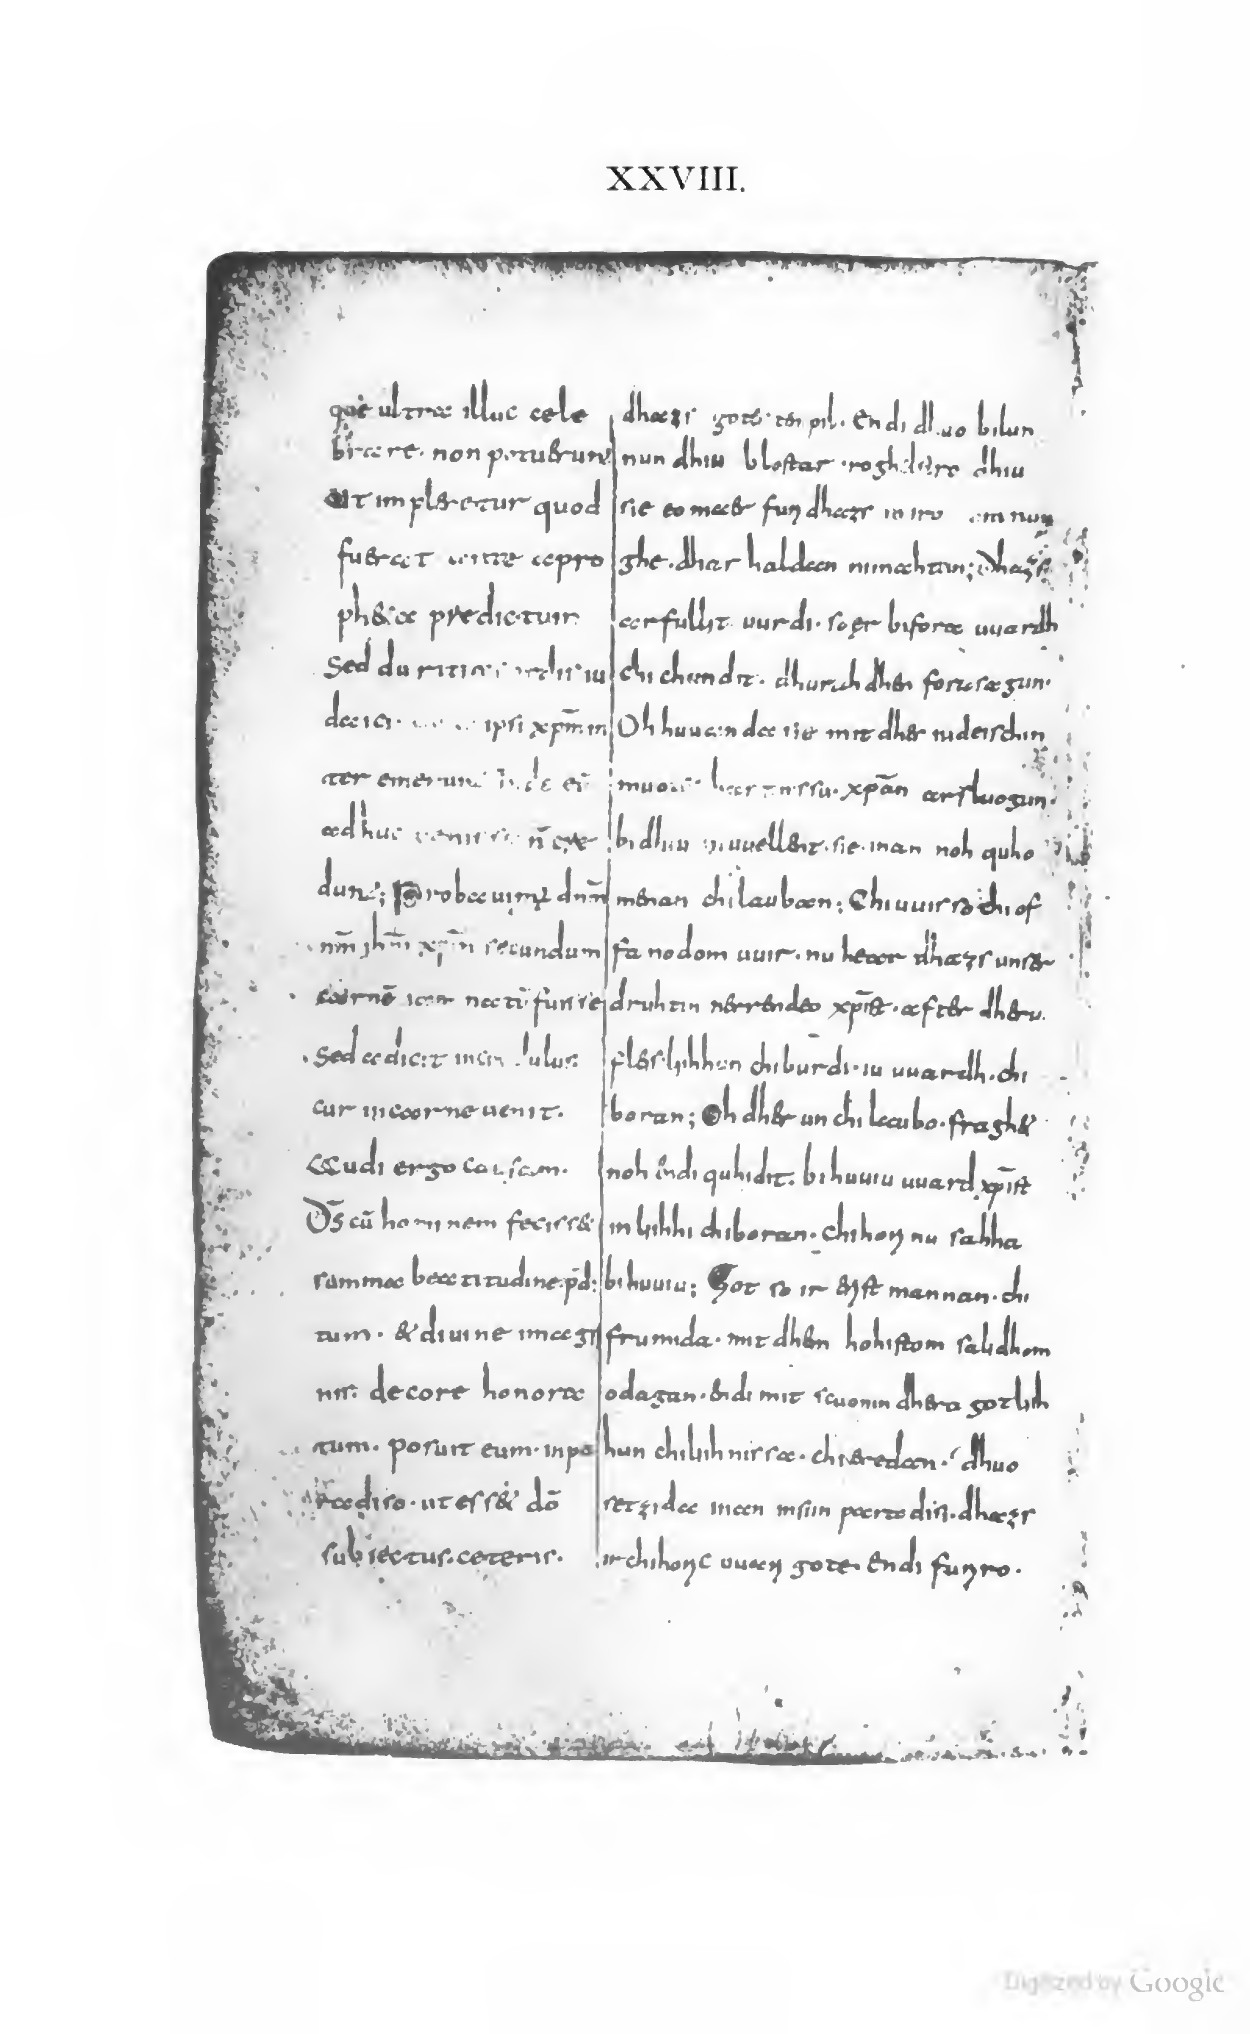 XXVIII.
que ultra illuc cele
brare. non potuerunt
Ut impleretur quod
fuerat ante a pro
pheta predictum
Sed duritia cordis iu
daici. ipsi xp̄m in
teremerunt inde eū
adhuc venisse n̄ cre
dunt; Probauimus dn̄m
nr̄m ihm̄ xp̄m secundum
carnē iam natū fuisse
Sed adicit incredulus
cur in carne uenit.
Audi ergo causam.
Ds̄ cū hominem fecisset
summa beatitudine p̄di
tum. & diuine imagi
nis decore honora
tum. posuit eum. in pa
radiso. ut ess& dō
subiectus. ceteris.
dhazs gotes tempil. Endi dhuo bilun
nun dhiu blostar iro ghelstro dhiu
sie eo maer fun dhazs in iro samnun
ghe. dhar haldan mimachtun; Dhazs
arfullit uurdi. so er bifora uuardh
chichundit. dhurah dhen forasagun.
Oh huuanda sie mit dhes iudeischin
muotes hartnissu. xp̄an arsluogun.
bidhiu ni uuelleNt. sie. inan noh quho
menan chilauban; Chiuuisso chiof
fanodom uuir. nu hear dhazs unser
druhtin nerrendeo xp̄ist. after dheru
fleisclihhun chiburdi. iu uuardh. chi
boran; Oh dher unchilaubo. fragh&
noh endi quhidit. bihuuiu uuard xp̄ist
in lihhi chiboran. Chihori nu sahha
bihuuiu; Got so ir erist mannan. chi
frumida. mit dhem hohistom salidhom
odagan. endi mit scuonin dhera gotlih
hun chilihnissa. chieredan. dhuo
setzida inan in siin paradisi. dhazs
ir chihoric uuari gote. Endi furiro.
Digitized by Google